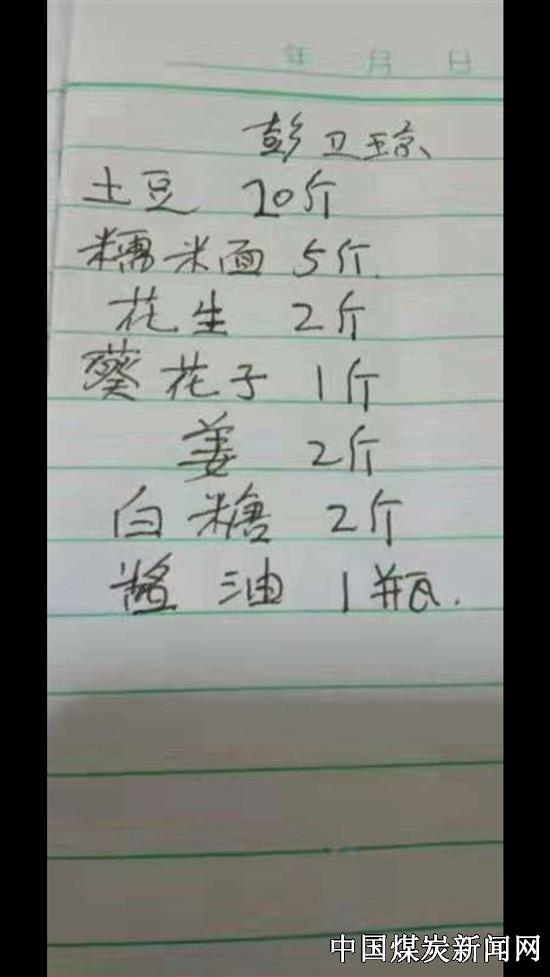 年 月 日
彭卫琼
土豆 20斤
糯米面 5斤.
花生 2斤
葵花子 1斤
姜 2斤
白糖 2斤
酱油 1瓶.
中国煤炭新闻网